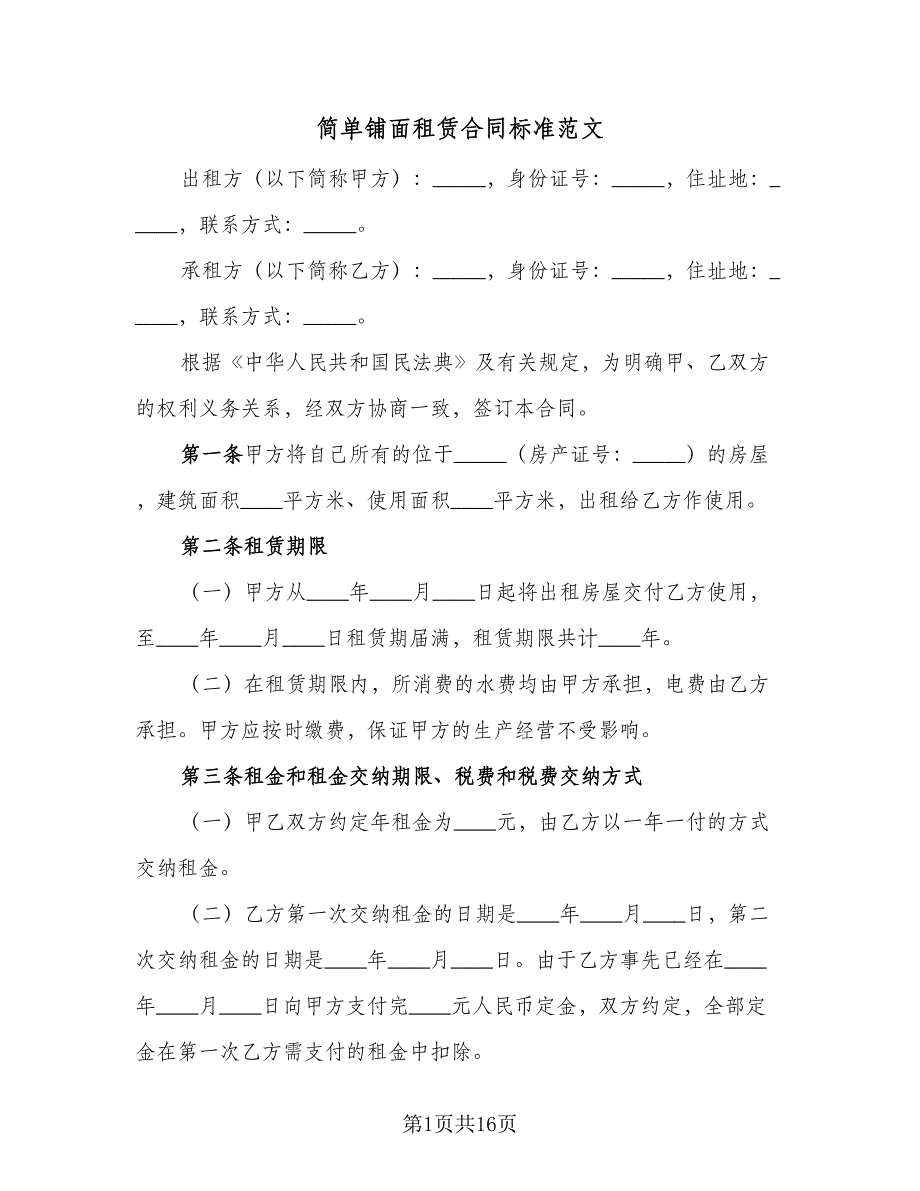 简单铺面租赁合同标准范文
出租方（以下简称甲方）：_____，身份证号：_____，住址地：_
____，联系方式：_____。
承租方（以下简称乙方）：_____，身份证号：_____，住址地：_
____，联系方式：_____。
根据《中华人民共和国民法典》及有关规定，为明确甲、乙双方
的权利义务关系，经双方协商一致，签订本合同。
第一条甲方将自己所有的位于_____（房产证号：_____）的房屋
，建筑面积____平方米、使用面积____平方米，出租给乙方作使用。
第二条租赁期限
（一）甲方从____年____月____日起将出租房屋交付乙方使用，
至____年____月____日租赁期届满，租赁期限共计____年。
（二）在租赁期限内，所消费的水费均由甲方承担，电费由乙方
承担。甲方应按时缴费，保证甲方的生产经营不受影响。
第三条租金和租金交纳期限、税费和税费交纳方式
（一）甲乙双方约定年租金为____元，由乙方以一年一付的方式
交纳租金。
（二）乙方第一次交纳租金的日期是____年____月____日，第二
次交纳租金的日期是____年____月____日。由于乙方事先已经在____
年____月____日向甲方支付完____元人民币定金，双方约定，全部定
金在第一次乙方需支付的租金中扣除。
第1页共16页